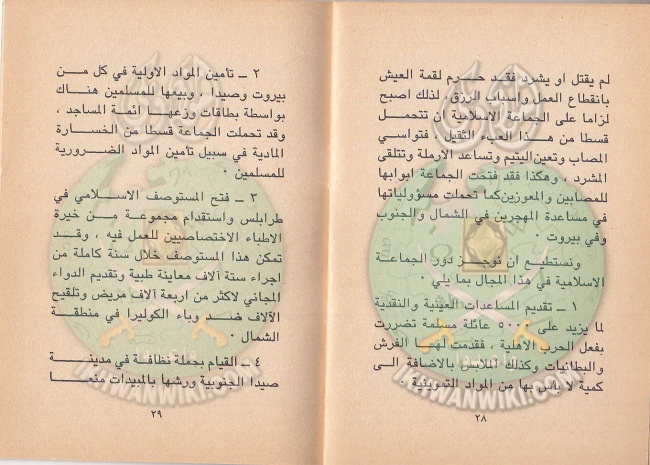 لم يقتل او يشرد فقد حرم لقمة العيش
بانقطاع العمل وأسباب الرزق ، لذلك اصبح
لزاما على الجماعة الاسلامية ان تتحمل
قسطا من هذا العبء الثقيل ، فتواسي
المصاب وتعين اليتيم وتساعد الارملة وتتلقى
المشرد ، وهكذا فقد فتحت الجماعة ابوابها
للمصابين والمعوزين كما تحملت مسؤولياتها
في مساعدة المهجرين في الشمال والجنوب
وفي بيروت .
ونستطيع ان نوجز دور الجماعة
الاسلامية في هذا المجال بما يلي .
١ ــ تقديم المساعدات العينية والنقدية
لما يزيد على ٥٠٠٠ عائلة مسلمة تضررت
بفعل الحرب الأهلية ، فقدمت لها الفرش
والبطانيات وكذلك الملابس بالاضافة الى
كمية لا بأس بها من المواد التموينية .
٢٨
٢ ــ تأمين المواد الاولية في كل من
بيروت وصيدا ، وبيعها للمسلمين هناك
بواسطة بطاقات وزعها ائمة المساجد ،
وقد تحملت الجماعة قسطا من الخسارة
المادية في سبيل تأمين المواد الضرورية
للمسلمين .
٣ ــ فتح المستوصف الاسلامي في
طرابلس واستقدام مجموعة من خيرة
الاطباء الاختصاصيين للعمل فيه ، وقد
تمكن هذا المستوصف خلال سنة كاملة من
اجراء ستة آلاف معاينة طبية وتقديم الدواء
المجاني لاكثر من اربعة آلاف مريض وتلقيح
الآلاف ضد وباء الكوليرا في منطقة
الشمال .
٤ ــ القيام بحملة نظافة في مدينة
صيدا الجنوبية ورشها بالمبيدات منعا
٢٩
IKHWANWIKI.COM
IKHWANWIKI.COM